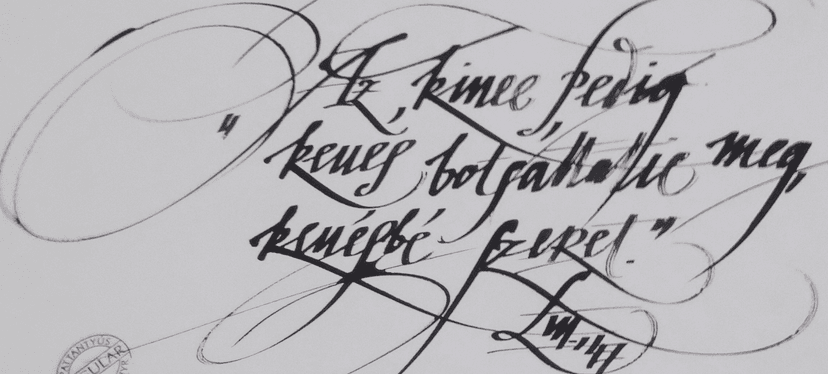 "Az, kinec pedig
keueſ botſattatic meg,
keuéſbé ſzeret."